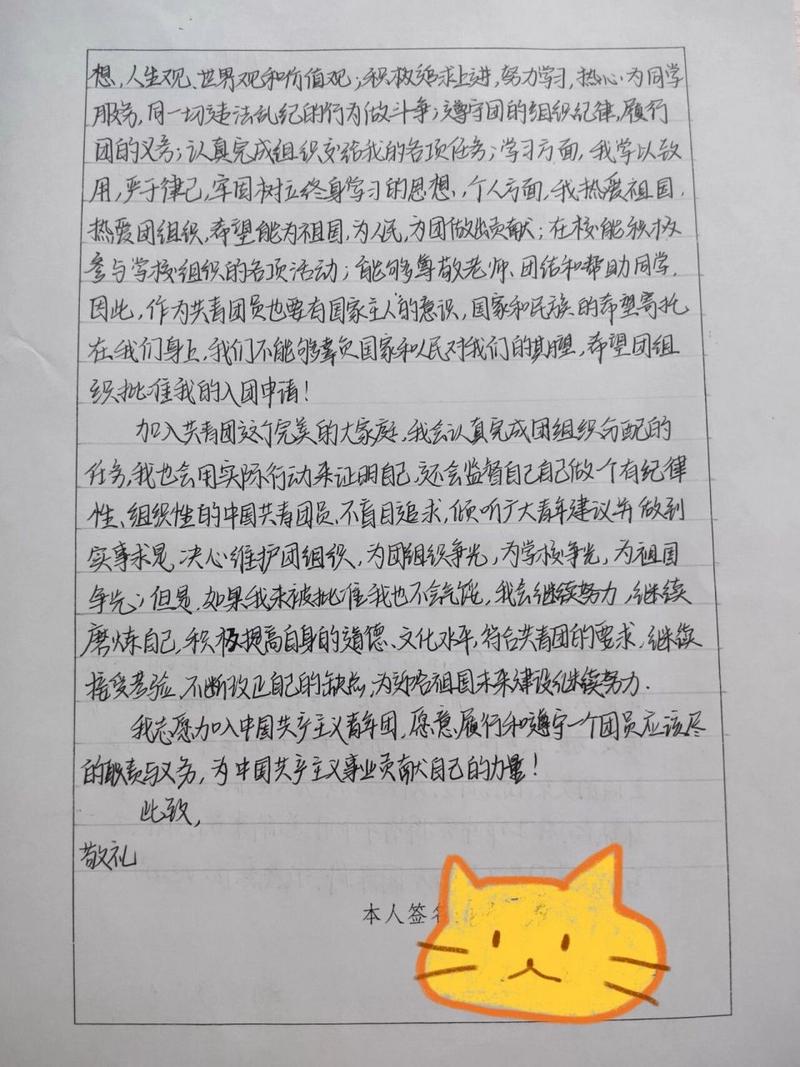 想,人生观、世界观和价值观;积极追求上进,努力学习,热心为同学
服务,同一切违法乱纪的行为做斗争;遵守团的组织纪律,履行
团的义务;认真完成组织交给我的各项任务;学习方面,我学以致
用,严于律己,牢固树立终身学习的思想,个人方面,我热爱祖国,
热爱团组织,希望能为祖国,为人民,为团做出贡献;在校能积极
参与学校组织的各项活动;能够尊敬老师、团结和帮助同学.
因此,作为共青团员也要有国家主人的意识,国家和民族的希望寄托
在我们身上,我们不能够辜负国家和人民对我们的期望,希望团组
织批准我的入团申请!
加入共青团这个完美的大家庭,我会认真完成团组织分配的
任务,我也会用实际行动来证明自己,还会监督自己自己做一个有纪律
性、组织性的中国共青团员、不盲目追求,倾听广大青年建议并做到
实事求是,决心维护团组织、为团组织争光,为学校争光,为祖国
争光;但是,如果我未被批准我也不会气馁,我会继续努力,继续
磨炼自己,积极提高自身的道德、文化水平,符合共青团的要求,继续
接受考验,不断改正自己的缺点,为祖国未来建设继续努力.
我志愿加入中国共产主义青年团,愿意履行和遵守一个团员应该尽
的职责与义务,为中国共产主义事业贡献自己的力量!
此致,
敬礼
本人签名